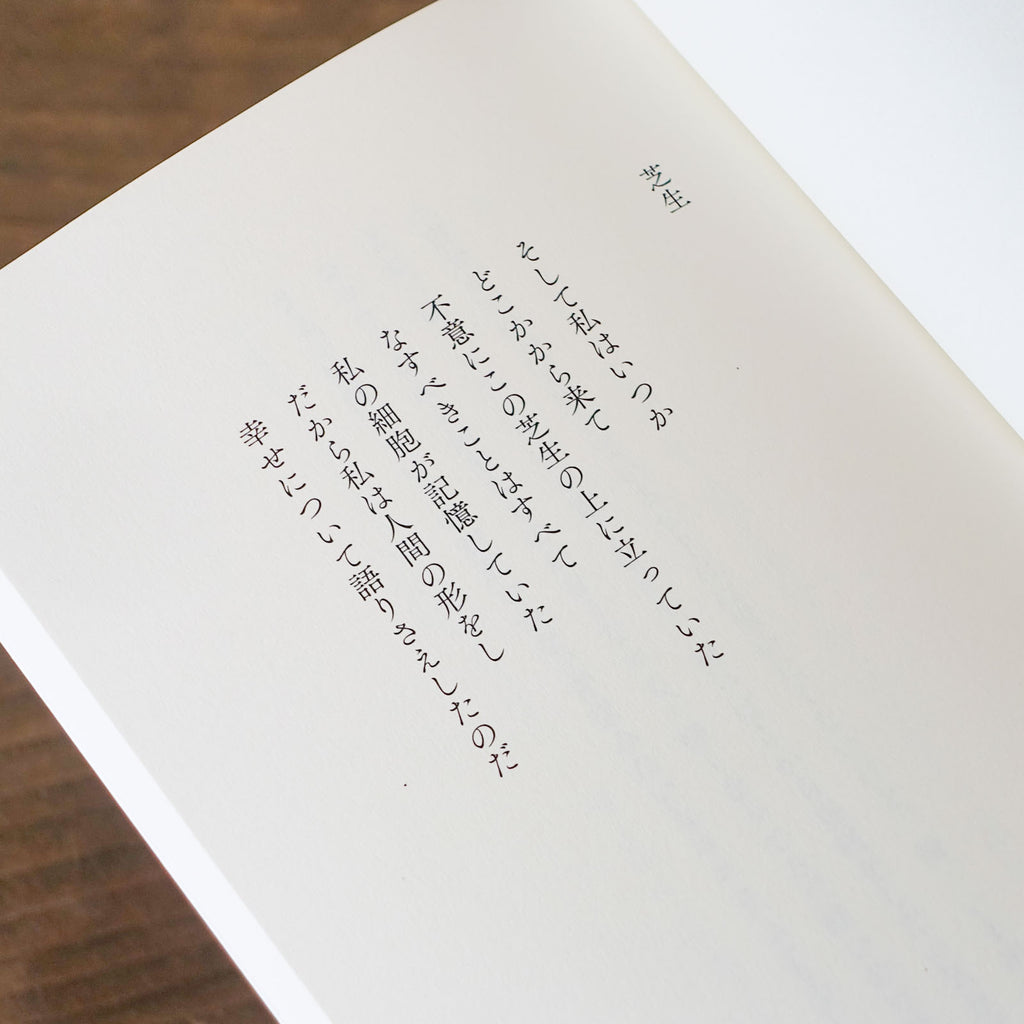 芝生
そして私はいつか
どこかから来て
不意にこの芝生の上に立っていた
なすべきことはすべて
私の細胞が記憶していた
だから私は人間の形をし
幸せについて語りさえしたのだ